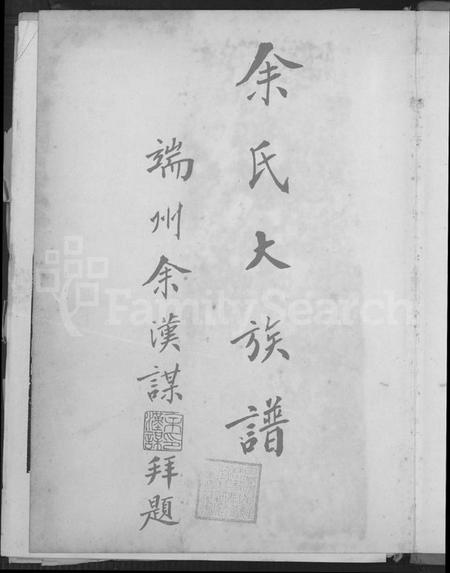 余氏大族譜
端州余漢謀拜題
FamilySearch